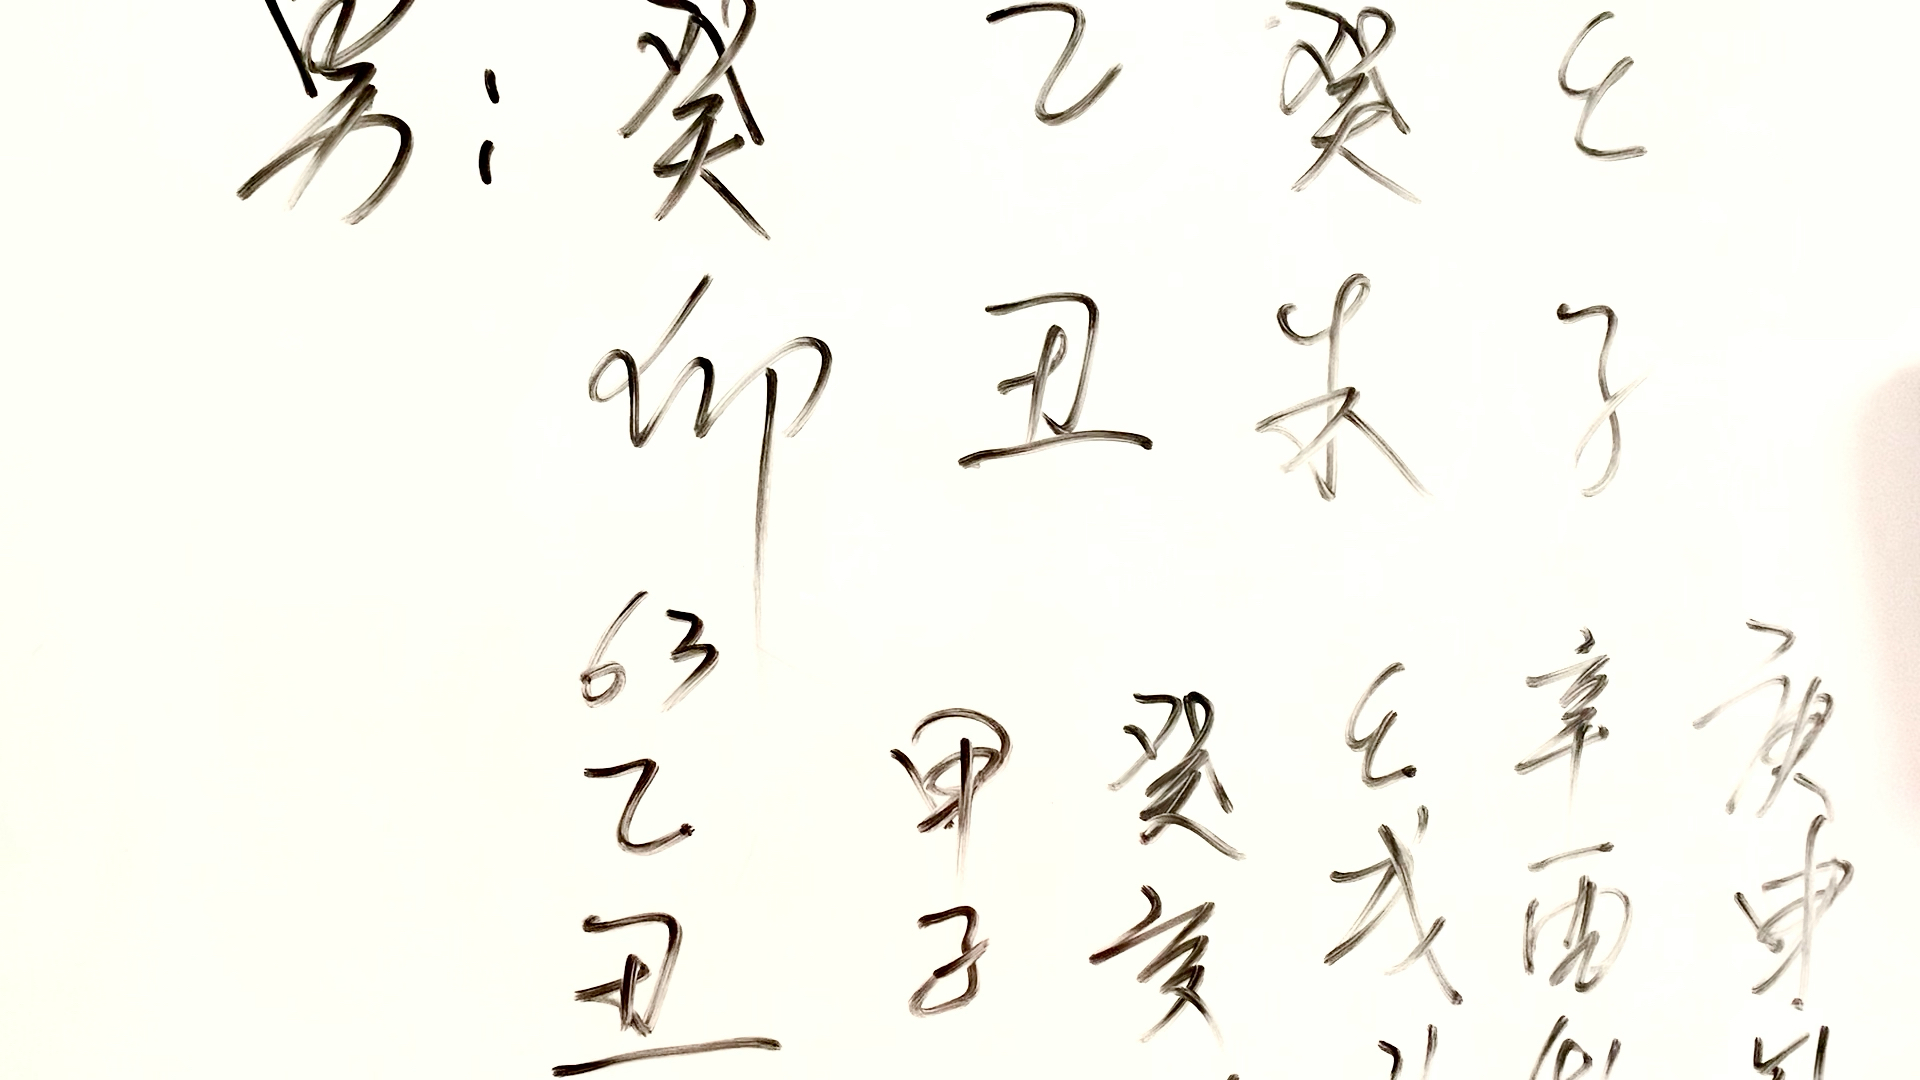 男：癸 乙 癸 壬
卯 丑 未 子
63
乙 甲 癸 壬 辛 庚
丑 子 亥 戌 酉 申